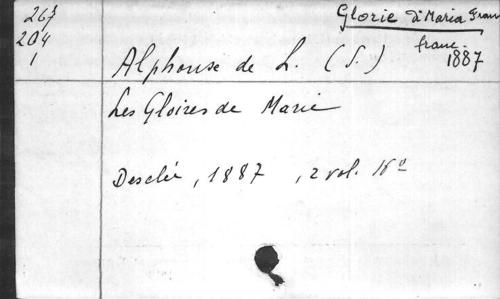 267
204
1
Glorie di Maria Franc
franc.
1887
Alphonse de L. (S.)
Les Gloires de Marie
Desclée, 1887, 2 vol. 16°